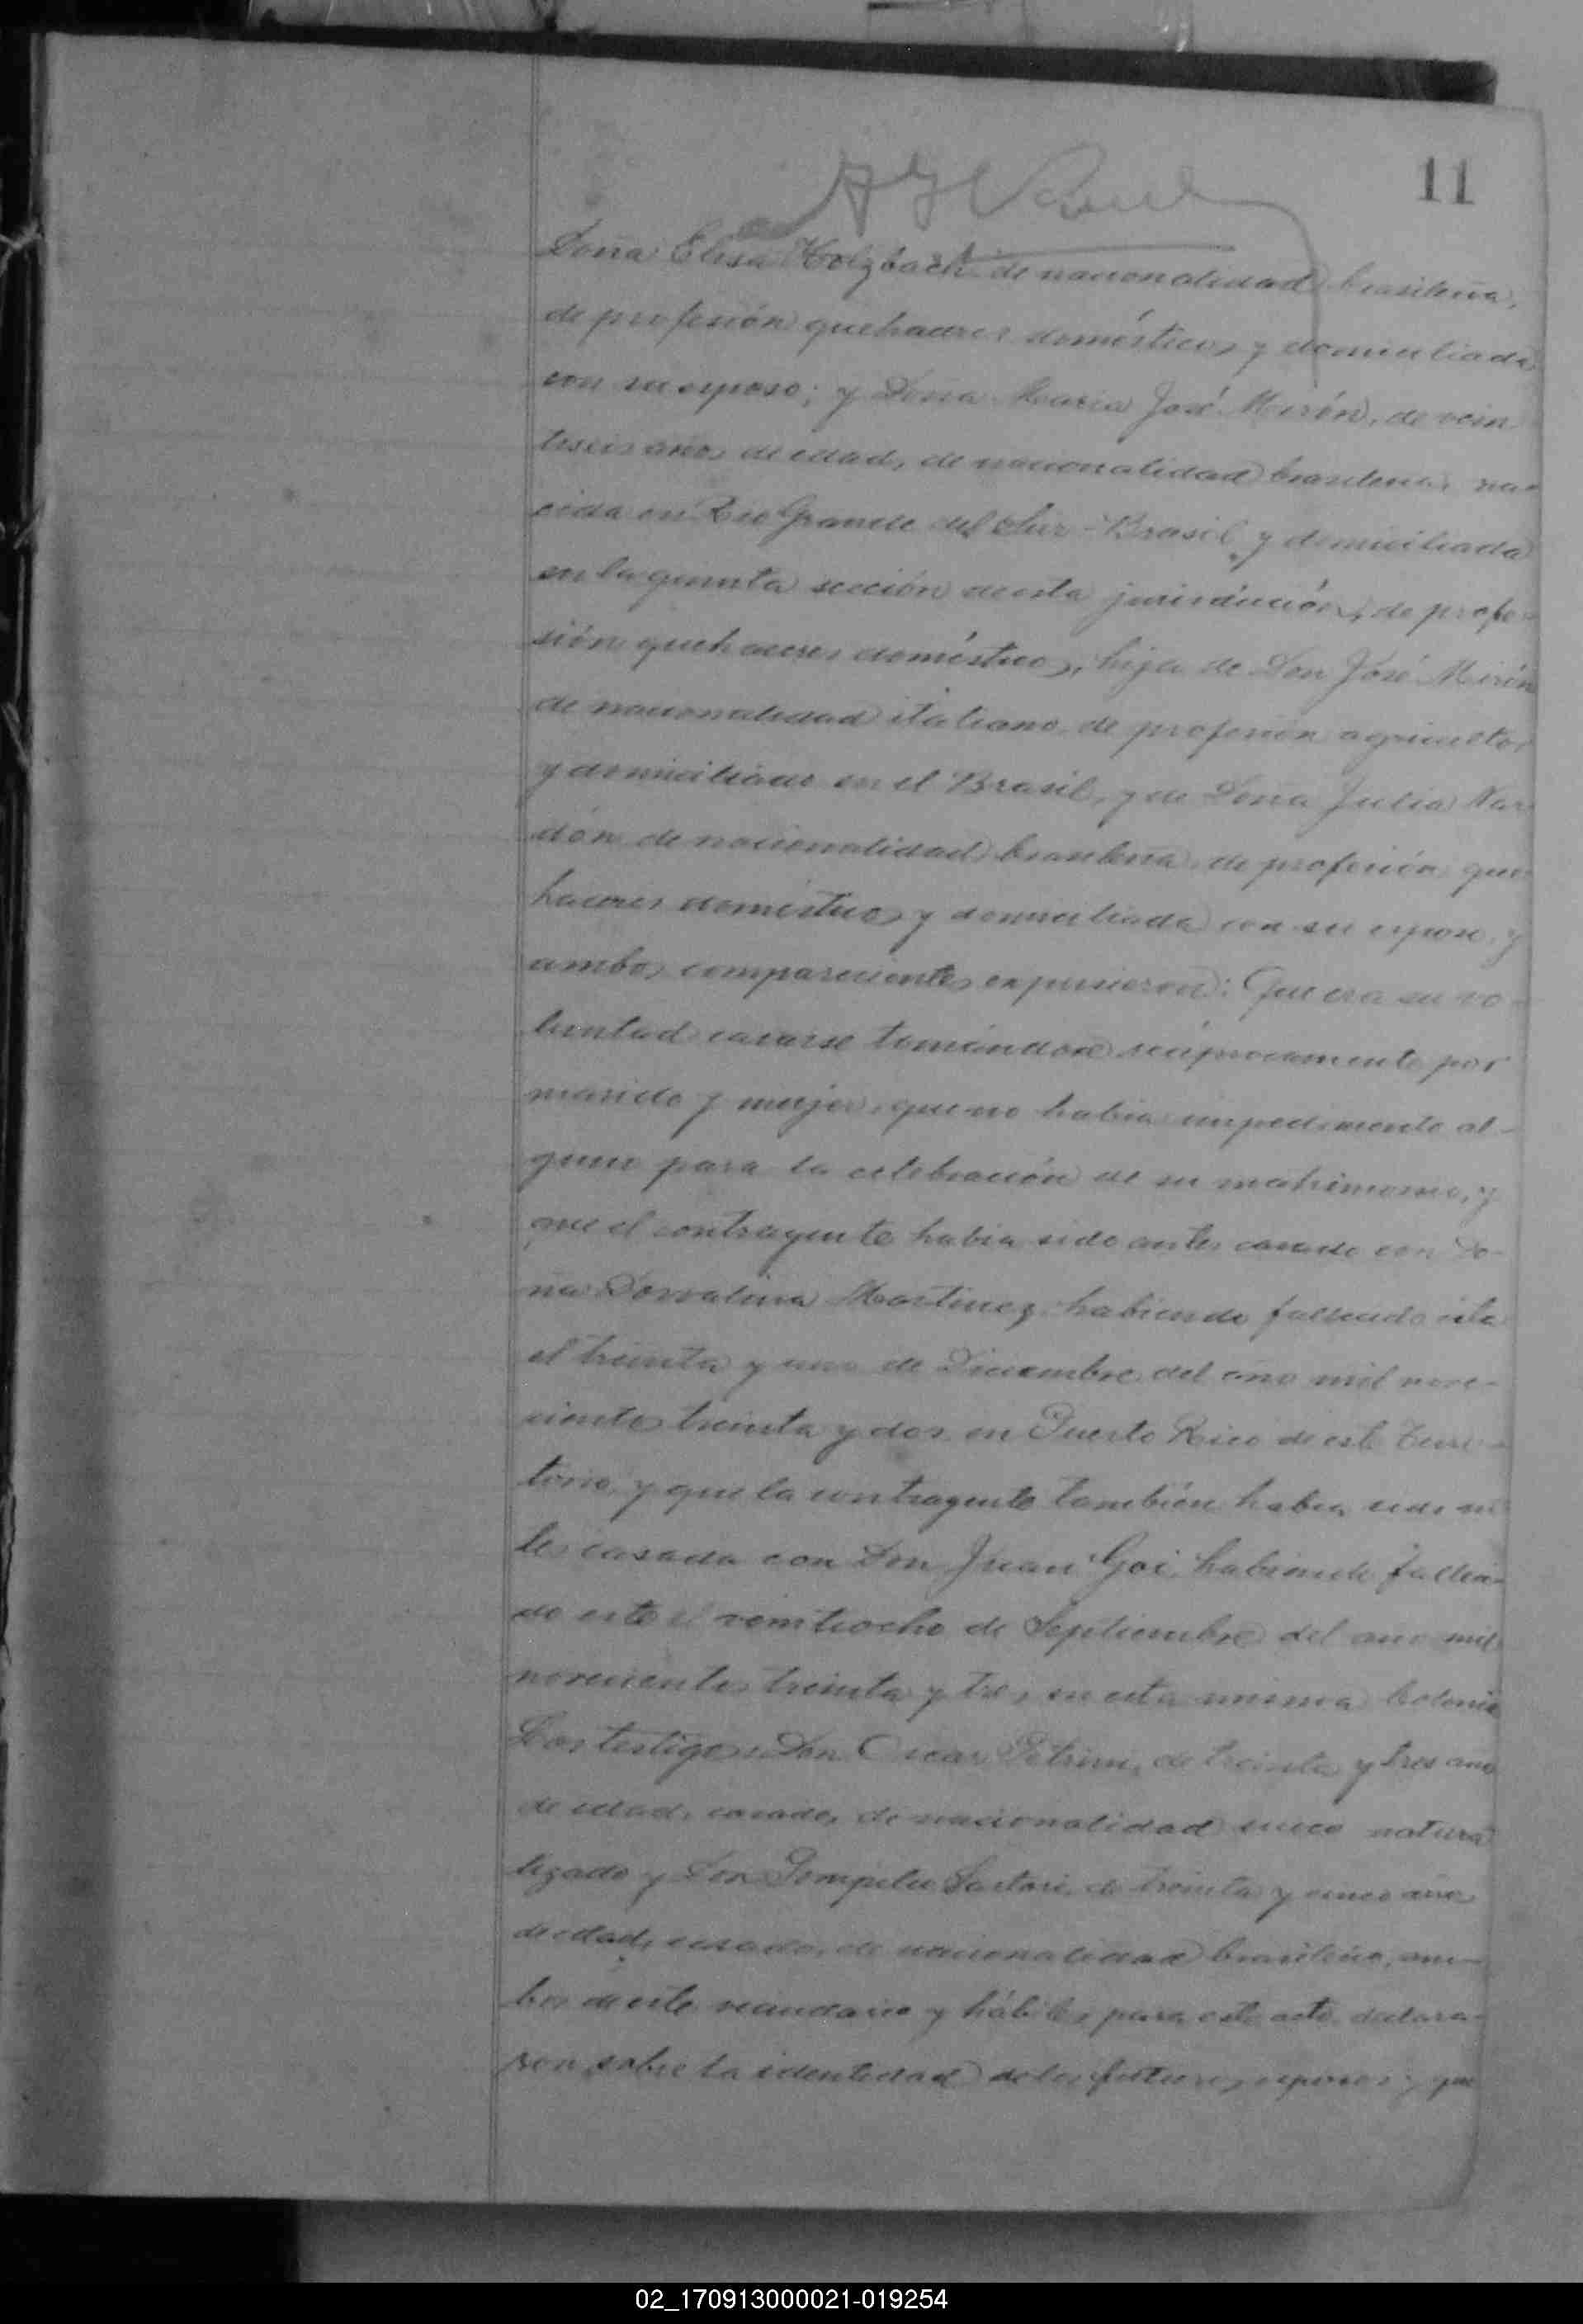 11
Doña Elisa Holzbach de nacionalidad brasileña,
de profesión quehaceres domésticos y domiciliada
con su esposo; y Doña Maria José Mirón, de vein
tiseis años de edad, de nacionalidad brasileña, na-
cida en Rio Grande del Sur - Brasil y domiciliada
en la quinta sección de esta jurisdicción, de profe-
sión quehaceres domésticos, hija de Don José Mirón
de nacionalidad italiano, de profesión agricultor
y domiciliado en el Brasil, y de Doña Julia Nar
dón de nacionalidad brasileña, de profesión que
haceres domésticos y domiciliada con su esposo, y
ambos comparecientes expusieron: Que era su vo-
luntad casarse tomándose reciprocamente por
marido y mujer, que no habia impedimento al-
guno para la celebración de su matrimonio, y
que el contrayente habia sido antes casado con Do-
ña Dorvalina Martinez habiendo fallecido esta
el treinta y uno de Diciembre del año mil nove-
cientos treinta y dos en Puerto Rico de este Terri-
torio, y que la contrayente también habia sido an
tes casada con Don Juan Goi, habiendo falleci-
do este el veintiocho de Septiembre del año mil
novecientos treinta y tres en esta misma Colonia
Los testigos: Don Oscar Petrini, de treinta y tres años
de edad, casado, de nacionalidad suizo natura
lizado y Don Pompilio Sartori, de treinta y cinco años
de edad, casado, de nacionalidad brasileño, am-
bos de este vecindario y hábiles para este acto, declara-
ron sobre la identidad de los futuros esposos y que
02_170913000021-019254